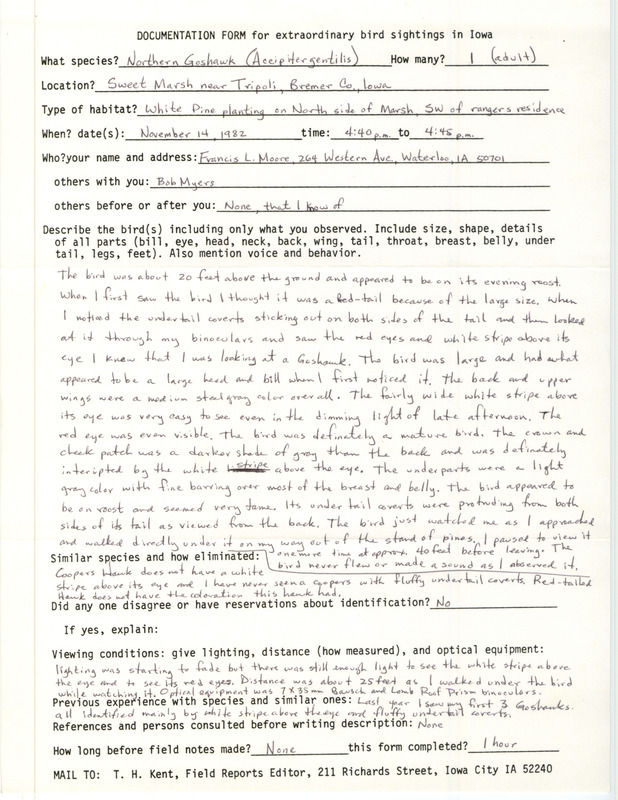 DOCUMENTATION FORM for extraordinary bird sightings in Iowa
What species? Northern Goshawk (Accipiter gentilis) How many? 1 (adult)
Location? Sweet Marsh near Tripoli, Bremer Co., Iowa
Type of habitat? White Pine planting on North side of Marsh, SW of rangers residence
When? date(s): November 14, 1982 time: 4:40 p.m. to 4:45 p.m.
Who?your name and address: Francis L. Moore, 264 Western Ave, Waterloo, IA 50701
others with you: Bob Myers
others before or after you: None, that I know of
Describe the bird(s) including only what you observed. Include size, shape, details
of all parts (bill, eye, head, neck, back, wing, tail, throat, breast, belly, under
tail, legs, feet). Also mention voice and behavior.
The bird was about 20 feet above the ground and appeared to be on its evening roost.
When I first saw the bird I thought it was a Red-tail because of the large size. When
I noticed the undertail coverts sticking out on both sides of the tail and then looked
at it through my binoculars and saw the red eyes and white stripe above its
eye I knew that I was looking at a Goshawk. The bird was large and had what
appeared to be a large head and bill when I first noticed it. The back and upper
wings were a medium steel gray color overall. The fairly wide white stripe above
its eye was very easy to see even in the dimming light of late afternoon. The
red eye was even visible. The bird was definately a mature bird. The crown and
cheek patch was a darker shade of gray than the back and was definately
interupted by the white stripe above the eye. The underparts were a light
gray color with fine barring over most of the breast and belly. The bird appeared to
be on roost and seemed very tame. Its under tail coverts were protruding from both
sides of its tail as viewed from the back. The bird just watched me as I approached
and walked directly under it on my way out of the stand of pines. I paused to view it
one more time at approx. 40 feet before leaving. The
bird never flew or made a sound as I observed it.
Similar species and how eliminated:
Coopers Hawk does not have a white
stripe above its eye and I have never seen a coopers with fluffy undertail coverts. Red-tailed
Hawk does not have the coloration this hawk had.
Did any one disagree or have reservations about identification? No
If yes, explain:
Viewing conditions: give lighting, distance (how measured), and optical equipment:
lighting was starting to fade but there was still enough light to see the white stripe above
the eye and to see its red eyes. Distance was about 25 feet as I walked under the bird
while watching it. Optical equipment was 7x35mm Bausch and Lomb Roof Prism binoculars.
Previous experience with species and similar ones: Last year I saw my first 3 Goshawks.
all identified mainly by white stripe above the eye and fluffy undertail coverts.
References and persons consulted before writing description: None
How long before field notes made? None this form completed? 1 hour
MAIL TO: T. H. Kent, Field Reports Editor, 211 Richards Street, Iowa City IA 52240